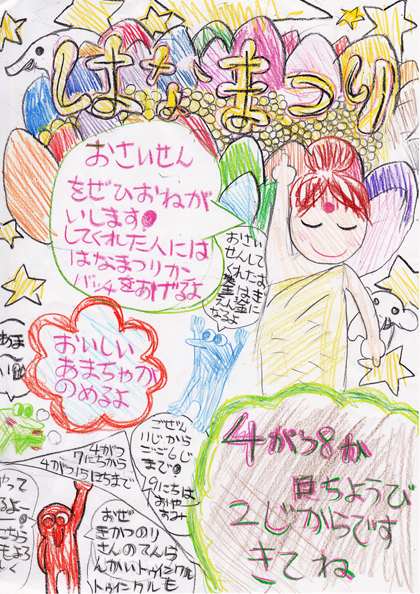 はなまつり
おさいせん
をぜひおねが
いします
してくれた人には
はなまつりカン
バッチをあげるよ
おさい
せんして
くれたお
金は
えんに
なるよ
おいしい
あまちゃが
のめるよ
あま〜
い
4がつ
7にちから
4がつ15にちまで
ごぜん
11じから
ごご6じ
まで
19にちは
おや
すみ
4がつ8か
日ちようび
2じからです
きてね
やって
るよー
こちら
もよろ
しく
おぜ
きかつのり
さんのてんら
んかいトゥインクル
トゥインクルも